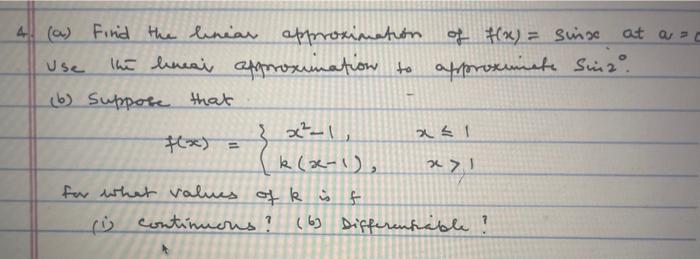 4. (a) Find the linear approximation of f(x) = sinx at a =
Use the linear approximation to approximate Sin2°.
(b) Suppose that
f(x) = { x²-1, x ≤ 1
k(x-1), x > 1
For what values of k is f
(i) continuous? (b) Differentiable?